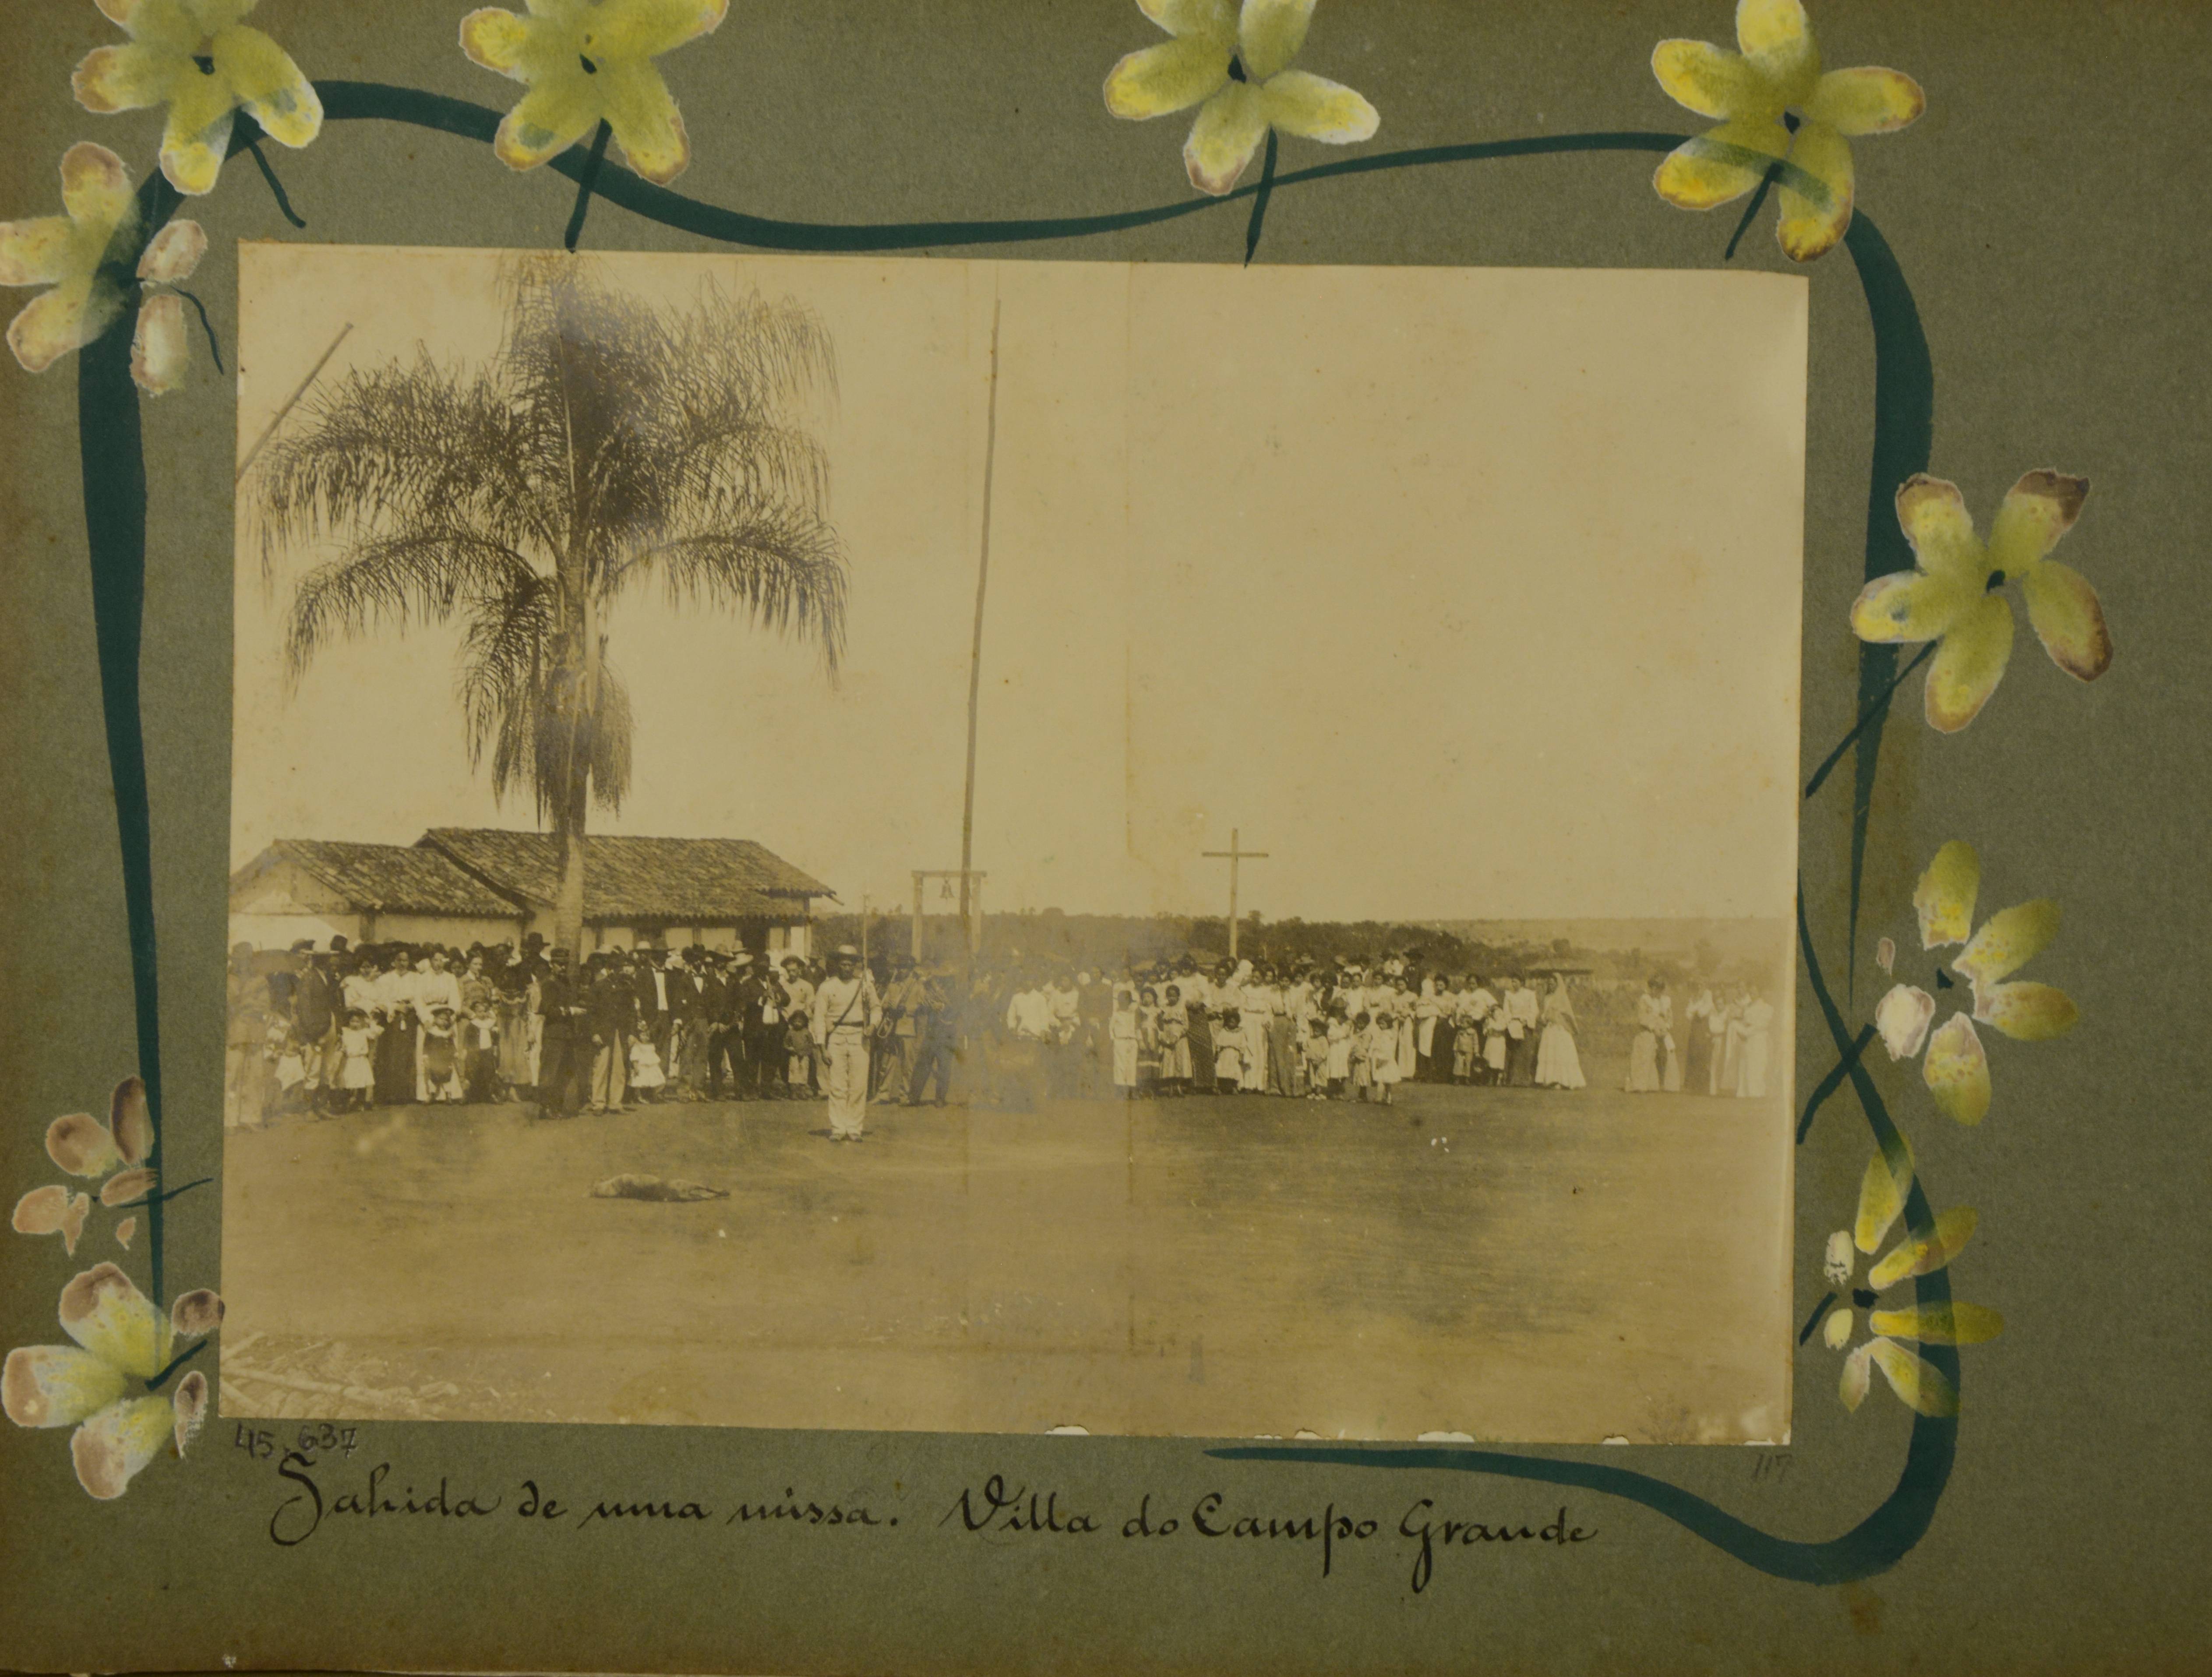 45.637
117
Sahida de uma missa. Villa do Campo Grande